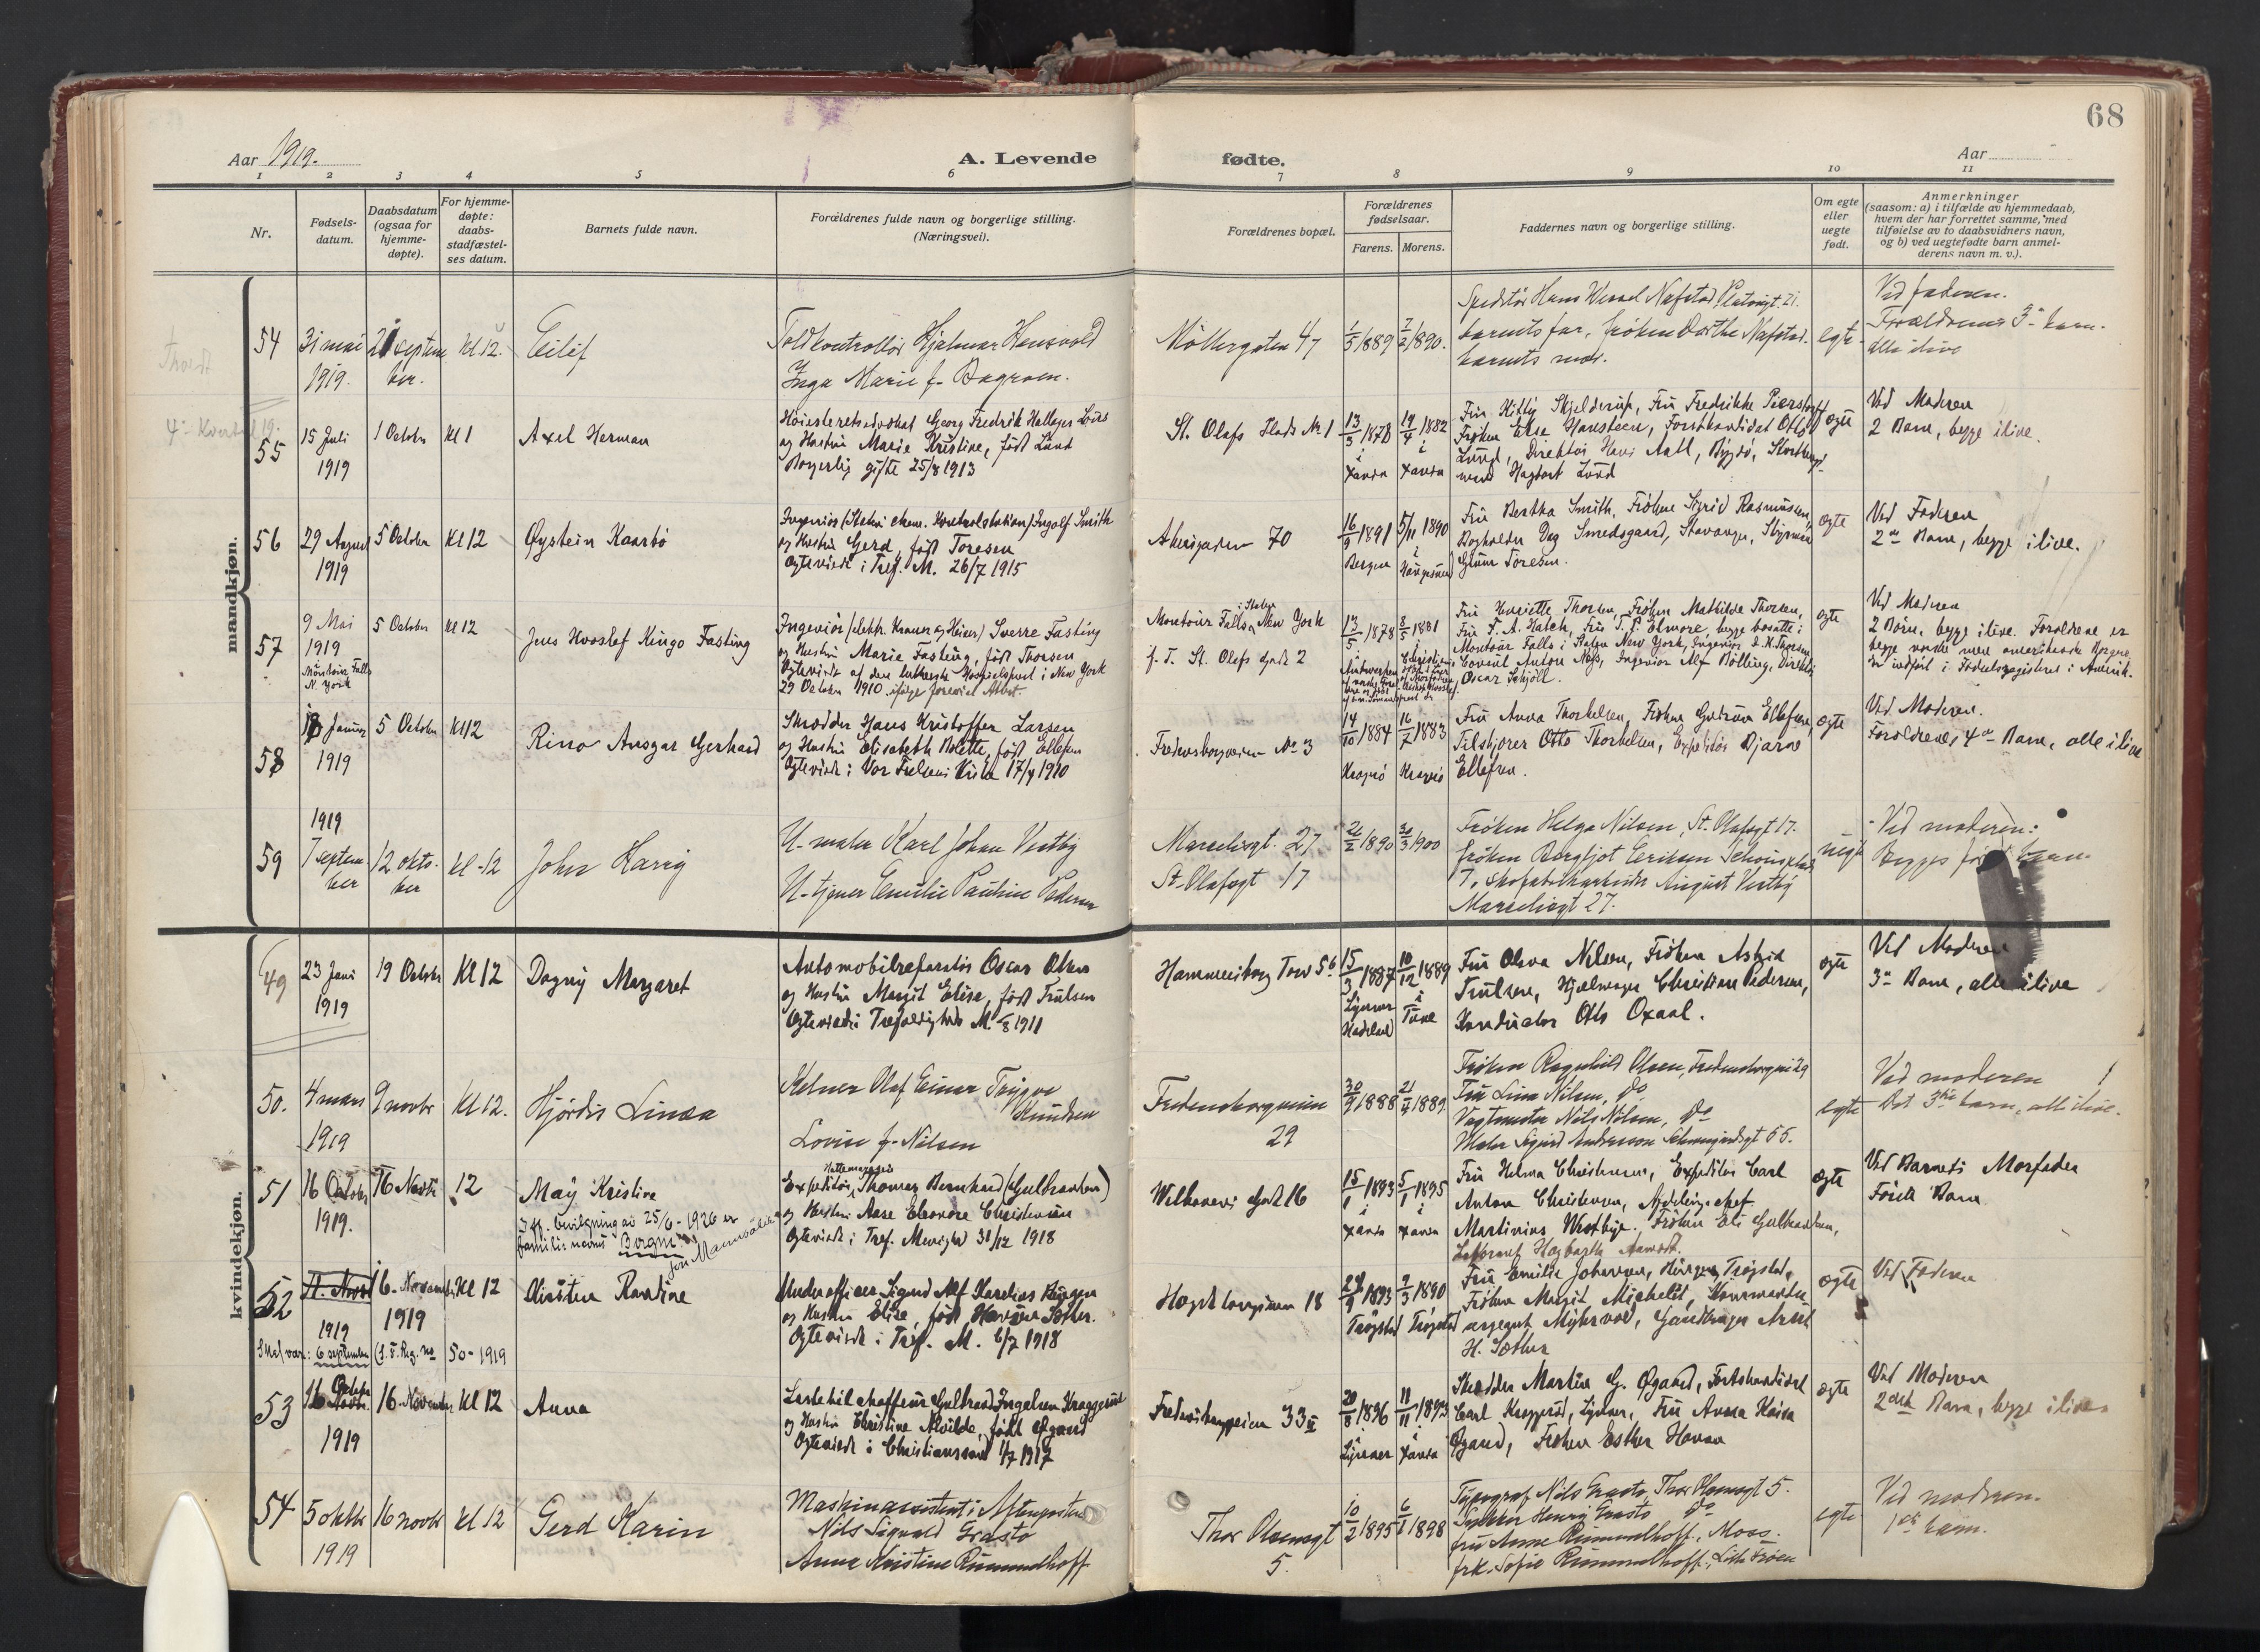 68
Aar 1919.
A. Levende fødte.
Aar
1 2 3 4 5 6 7 8 9 10 11
Nr.
Fødsels-
datum.
Daabsdatum
(ogsaa for
hjemme-
døpte).
For hjemme-
døpte:
daabs-
stadfæstel-
ses datum.
Barnets fulde navn.
Forældrenes fulde navn og borgerlige stilling.
(Næringsvei).
Forældrenes bopæl.
Forældrenes
fødselsaar.
Farens. Morens.
Faddernes navn og borgerlige stilling.
Om egte
eller
uegte
født.
Anmerkninger
(saasom: a) i tilfælde av hjemmedaab,
hvem der har forrettet samme, med
tilføielse av to daabsvidners navn,
og b) ved uegtefødte barn anmel-
derens navn m. v.).
mandkjøn.
54
31 mai
1919.
21 septem
ber.
Kl 12.
Eilif
Toldkontrollør Hjalmar
Inga Marie f.
Møllergaten 47
1/5 1889
7/2 1890.
Speditør Hans Wessel Nafstad
barnets far, frøken Dorthe Nafstad.
barnets mor.
egte
Ved faderen.
Forældrenes 3die barn.
alle ilive
55
15 Juli
1919
1 October
Kl 1
Axel Herman
Høiesteretsadvokat Georg Fredrik Hallager
og Hustru Marie Kristine, født Lund
Borgerlig gifte 25/8 1913
St. Olafs Plads Nr 1
13/3 1878
i
Xania
14/4 1882
i
Xania
Fru Kitty Skjelderup, Fru Fredrikke
Frøken Else Hansteen, Forstkandidat Otto
Lund, Direktør Hans Aall, Bygdø,
Hagbart Lund
egte
Ved Moderen
2 Barn, begge ilive.
56
29 August
1919
5 October
Kl 12
Øystein Kaarbø
Ingeniør (Statens kem. Kontrolstation) Ingolf Smith
og Hustru Gerd, født Toresen
Egteviede i Tref. M. 26/7 1915
Akersgaden 70
16/9 1891
Bergen
5/11 1890
i
Haugesund
Fru Bertha Smith, Frøken Sigrid Rasmussen,
Bogholder Dag Smedsgaard, Stavanger, Styrmand
Gunnar Toresen.
egte
Ved Faderen
2det Barn, begge ilive.
57
9 Mai
1919
Montour Falls
N. York
5 October
Kl 12
Jens Hvoslef Kingo Fasting
Ingeniør Sverre Fasting
og Hustru Marie Fasting, født Thorsen
Egteviede af den lutherske Hospitalsprest i New York
29 October 1910 ifølge forevist Attest
Montour Falls i Staten New York
f. T. St. Olafs Gade 2
13/5 1878
8/5 1881
Fru Henriette Thorsen, Frøken Mathilde Thorsen,
Fru F. A. Hatch, Fru T. P. Elmore, begge bosatte i
Montour Falls i Staten New York, Ingeniør S. H. Thorsen
Consul Anton Næss, Ingeniør Alf Bölling, Direktør
Oscar Schjöll.
egte
Ved Moderen
2 Børn, begge ilive. Forældrene er
begge norske men amerikanske Borgere
er indført i Fødselsregisteret i Amerika.
58
Januar
1919
5 October
Kl 12
Rino Ansgar Gerhard
Skrædder Hans Kristoffer Larsen
og Hustru Elisabeth Bolette, født Ellefsen
Egteviede i Vor Frelsers Kirke 17/4 1910
Fredensborgveien No 3
14/10 1884
Kragerø
16/7 1883
Kragerø
Fru Anna Thorkelsen, Frøken Gudrun Ellefsen,
Tilskjærer Otto Thorkelsen, Expeditør Bjarne
Ellefsen.
egte
Ved Moderen.
Forældrenes 4de Barn, alle ilive
59
1919
7 septem
ber
12 okto-
ber
Kl -12
John Harry
U. maler Karl Johan Vestby
U. tjener Emilie Pauline Pedersen
Marcelisgt. 27
St. Olafsgt 17
1890
30/3 1900
Frøken Helga Nilsen, St. Olafsgt 17.
frøken Borghjot Eriksen Schousplads
7, skofabrikarbeider August Vestby
Marcelisgt 27.
uegte
Ved moderen.
Begges første barn.
kvindekjøn.
49
23 Juni
1919
19 October
Kl 12
Dagny Margaret
Automobilreparatør Oscar Olsen
og Hustru Margit Elise, født Trulsen
Egteviede i Trefoldigheds M. /8 1911
Hammersborg Torv 5b
15/3 1887
Hadeland
10/12 1889
i
Tune
Fru Olava Nilsen, Frøken Astrid
Trulsen, Hjulmager Christian Pedersen,
Konduktør Otto Oxaal.
egte
Ved Moderen
3die Barn, alle ilive
50.
4 mars
1919
9 novbr
Kl 12.
Hjördis Linea
Kelner Olaf Einar Trygve
Knudsen
Lovise f. Nilsen
Fredensborgveien
29
30/9 1888
21/4 1889
Frøken Ragnhild Olsen, Fredensborgvei 29
Fru Lina Nilsen, do
Vagtmester Nils Nilsen, do
Maler Sigurd Andersson Schweigaardsgt 55.
egte
Ved moderen
Det 3die barn, alle ilive.
51
16 October
1919.
16 Novbr
12
May Kristine
Iflg. bevilgning av 25/6-1926 er
familienavnet Borgni
Expeditør, Thomas Bernhard (Gulbrandsen)
og Hustru Aase Eleonore Christensen
Egteviede i Tref. Menighed 31/12 1918
Wilhelms Gade 16
15/1 1893
i
Xania
5/1 1895
i
Xania
Fru Helma Christensen, Expeditør Carl
Anton Christensen, Afdelingschef
Martinius Westbye. Frøken Eli Gulbrandsen,
Hagbarth Aamodt.
egte
Ved Barnets Morfader
Første Barn
52
11. Novbr
1919
16. November
1919
Kl 12
Skal være: 6 september (s. F. Reg. no 50-1919
Kirsten Randine
Underofficer Sigurd Alf Karelius Bingen
og Hustru Elise, født Sæther.
Egteviede i Tref. M. 6/7 1918
18
24/9 1893
Trøgstad
7/3 1890
Trøgstad
Fru Emilie Johansen, Trøgstad,
Frøken Margit Michelet,
sergeant Myhrvold, Gaardbruger
H. Sæther
egte
Ved Faderen
53
16 October
1919
16. November
Kl 12
Anna
Lastebilchauffeur Gulbrand Ingolfsen Kraggerud
og Hustru Christine Alvilde, født Øgaard
Egteviede i Christianssand 1/7 1917
Fredensborgveien 33 II
20/8 1896
11/11 1893
i
Xania
Skrædder Martin G. Øgaard, Forstkandidat
Carl Kraggerud, Fru Anna Kaisa
Øgaard, Frøken Esther Hansen
egte
Ved Moderen
2det Barn, begge ilive
54
5 oktbr
1919
16 novbr
Kl 12
Gerd Karin
Maskinassistent i Aftenposten
Nils Sigvald Grastø
Anna Kristine Rummelhoff
Thor Olsensgt
5.
10/2 1895
1898
Typograf Nils Grastø, Thor Olsensgt 5.
Henry Grastø do
fru Anne Rummelhoff, Moss.
frk. Sofie Rummelhoff,
egte
Ved moderen.
1ste barn.